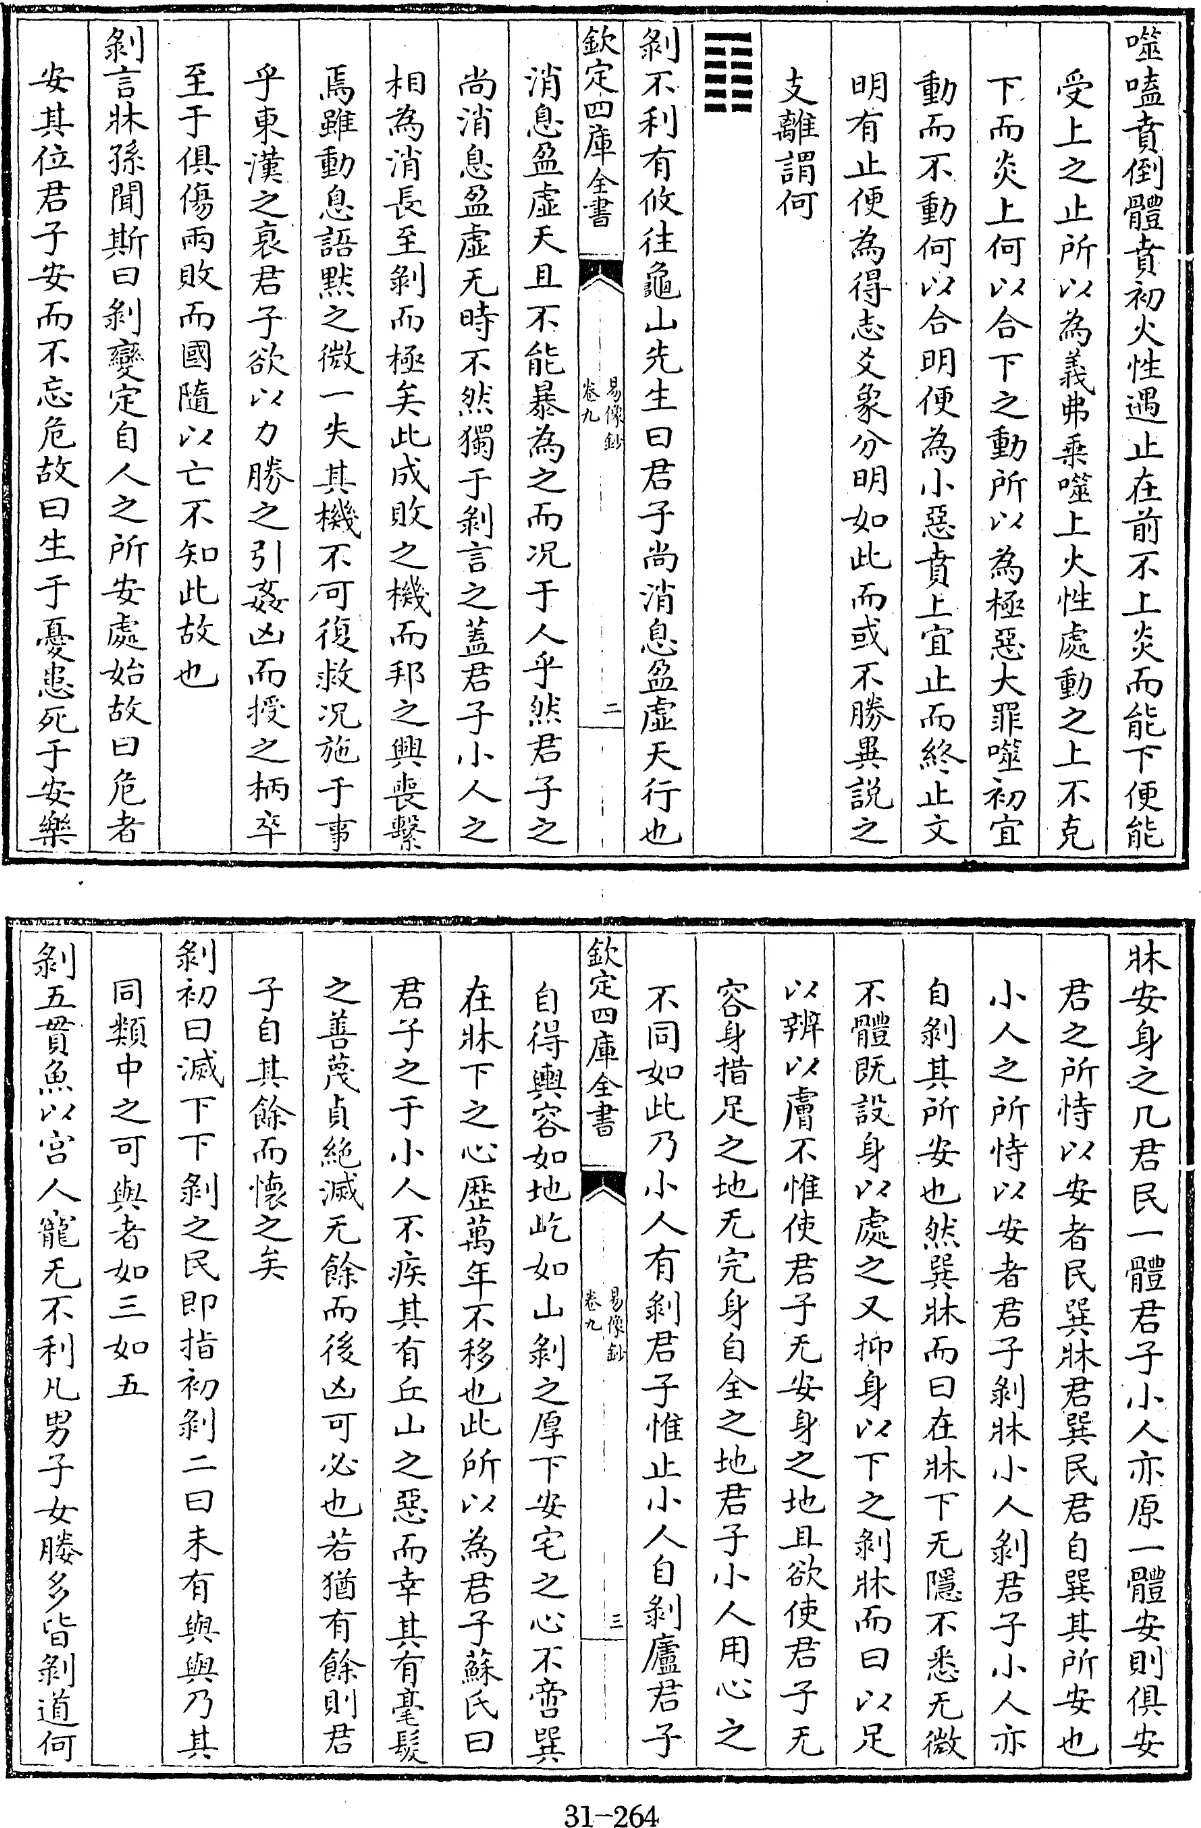 噬嗑賁倒體賁初火性遇止在前不上炎而能下便能
受上之止所以為義弗乗噬上火性處動之上不克
下而炎上何以合下之動所以為極惡大罪噬初宜
動而不動何以合明便為小惡賁上宜止而終止文
明有止便為得志爻象分明如此而或不勝異説之
支離謂何
䷖
剝不利有攸往龜山先生曰君子尚消息盈虛天行也
欽定四庫全書
易像鈔
卷九
二
消息盈虛天且不能暴為之而况于人乎然君子之
尚消息盈虛无時不然獨于剝言之蓋君子小人之
相為消長至剝而極矣此成敗之機而邦之興喪繫
焉雖動息語黙之微一失其機不可復救况施于事
乎東漢之衰君子欲以力勝之引姦凶而授之柄卒
至于俱傷兩敗而國隨以亡不知此故也
剝言牀孫聞斯曰剝變定自人之所安處始故曰危者
安其位君子安而不忘危故曰生于憂患死于安樂
牀安身之几君民一體君子小人亦原一體安則俱安
君之所恃以安者民巽牀君巽民君自巽其所安也
小人之所恃以安者君子剝牀小人剝君子小人亦
自剝其所安也然巽牀而曰在牀下无隱不悉无微
不體既設身以處之又抑身以下之剝牀而曰以足
以辨以膚不惟使君子无安身之地且欲使君子无
容身措足之地无完身自全之地君子小人用心之
不同如此乃小人有剝君子惟止小人自剝廬君子
欽定四庫全書
易像鈔
卷九
三
自得輿容如地屹如山剝之厚下安宅之心不啻巽
在牀下之心歴萬年不移也此所以為君子蘇氏曰
君子之于小人不疾其有丘山之惡而幸其有毫髮
之善蔑貞絶滅无餘而後凶可必也若猶有餘則君
子自其餘而懐之矣
剝初曰滅下下剝之民即指初剝二曰未有與與乃其
同類中之可與者如三如五
剝五貫魚以宫人寵无不利凡男子女媵多皆剝道何
31-264